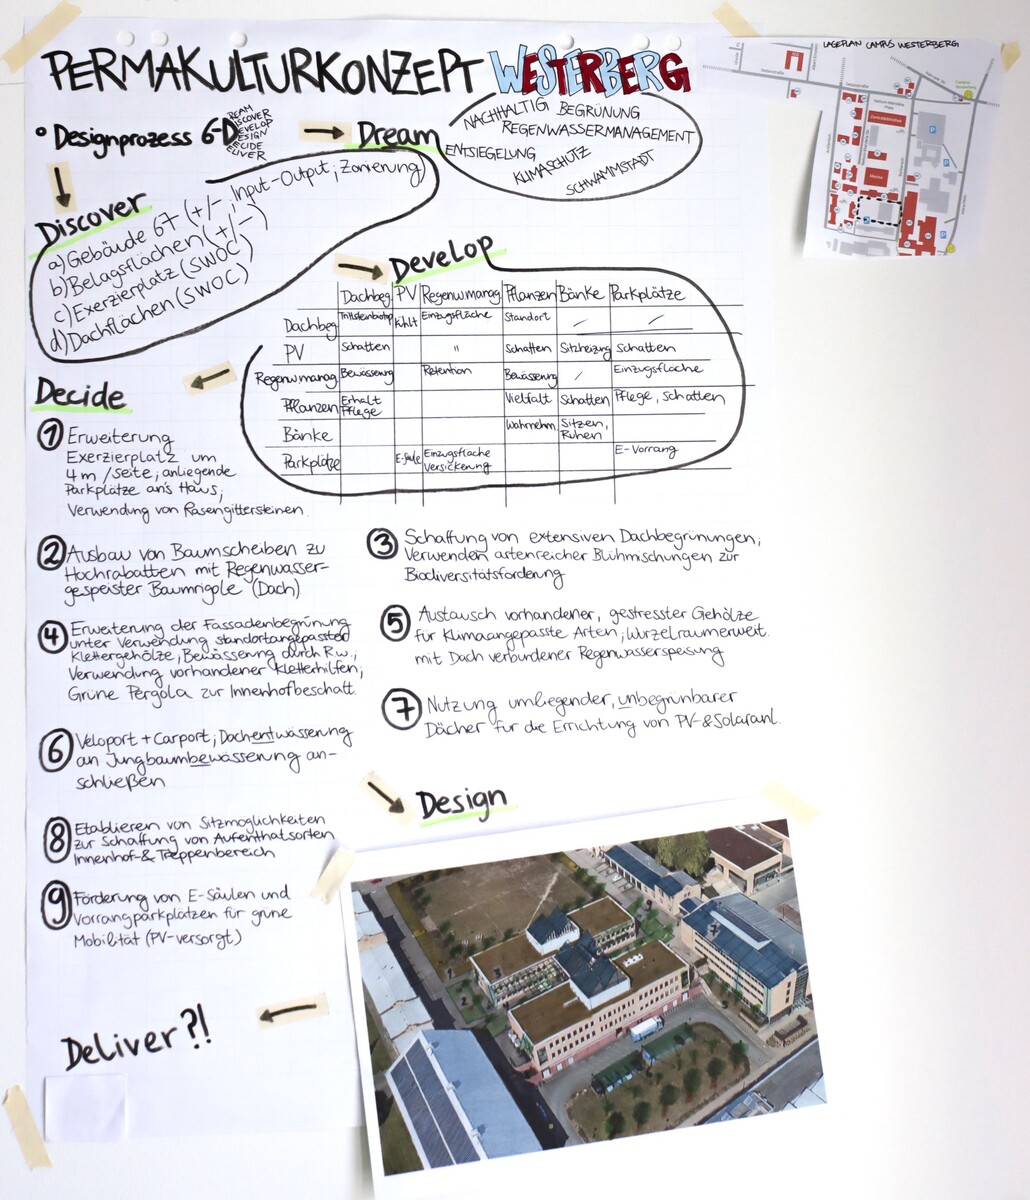 PERMAKULTURKONZEPT WESTERBERG
LAGEPLAN CAMPUS WESTERBERG
° Designprozess 6-D
DREAM
DISCOVER
DEVELOP
DESIGN
DECIDE
DELIVER
Dream
NACHHALTIG BEGRÜNUNG
REGENWASSERMANAGEMENT
ENTSIEGELUNG
KLIMASCHUTZ
SCHWAMMSTADT
Discover
a) Gebäude 67 (+/- , Input-Output ; Zonierung)
b) Belagsflächen (+/-)
c) Exerzierplatz (SWOC)
d) Dachflächen (SWOC)
Develop
Dachbeg PV Regenwmanag Pflanzen Bänke Parkplätze
Dachbeg Trittsteinbiotop kühlt Einzugsfläche Standort / /
PV Schatten " Schatten Sitzheizung Schatten
Regenwmanag Bewässerung Retention Bewässerung / Einzugsfläche
Pflanzen Erhalt Pflege Vielfalt Schatten Pflege, Schatten
Bänke Wahrnehm. Sitzen, Ruhen
Parkplätze E-Säule Einzugsfläche Versickerung E-Vorrang
Decide
1 Erweiterung
Exerzierplatz um
4m/Seite; anliegende
Parkplätze an's Haus;
Verwendung von Rasengittersteinen.
2 Ausbau von Baumscheiben zu
Hochrabatten mit Regenwasser-
gespeister Baumrigole (Dach)
3 Schaffung von extensiven Dachbegrünungen;
Verwenden artenreicher Blühmischungen zur
Biodiversitätsförderung
4 Erweiterung der Fassadenbegrünung
unter Verwendung standortangepasster
Klettergehölze; Bewässerung durch R.w.;
Verwendung vorhandener Kletterhilfen;
Grüne Pergola zur Innenhofbeschatt.
5 Austausch vorhandener, gestresster Gehölze
für Klimaangepasste Arten; Wurzelraumerweit.
mit Dach verbundener Regenwasserspeisung
6 Veloport + Carport; Dachentwässerung
an Jungbaumbewässerung an-
schließen
7 Nutzung umliegender, unbegrünbarer
Dächer für die Errichtung von PV-&Solaranl.
8 Etablieren von Sitzmöglichkeiten
zur Schaffung von Aufenthaltsorten
Innenhof-& Treppenbereich
9 Förderung von E-Säulen und
Vorrangparkplätzen für grüne
Mobilität (PV-versorgt)
Design
Deliver?!